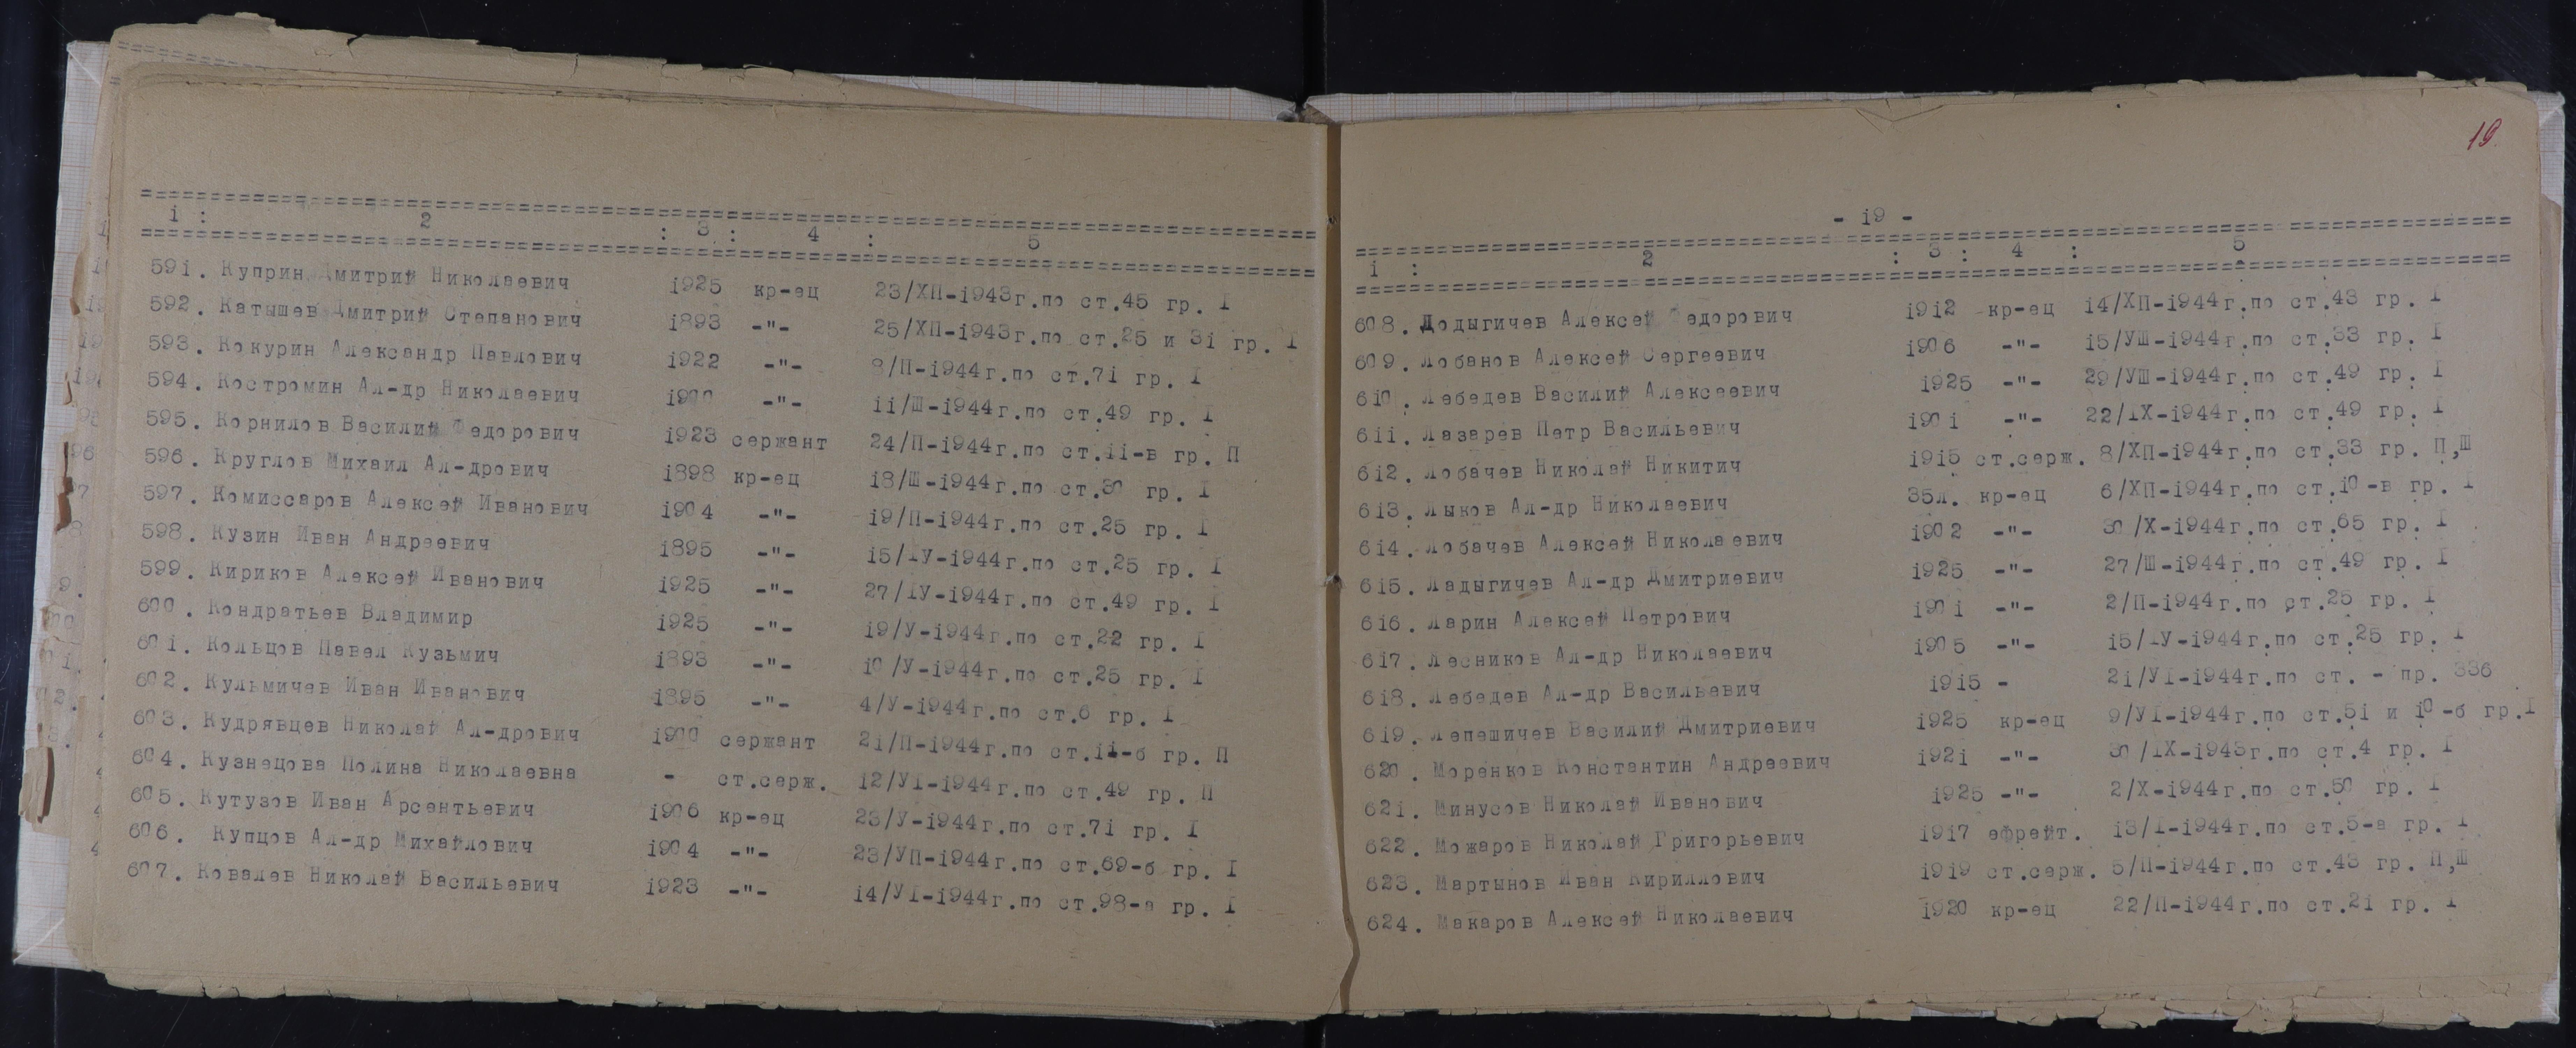 1 : 2 : 3 : 4 : 5
591. Куприн Дмитрий Николаевич 1925 кр-ец 23/ХП-1943г.по ст.45 гр. I
592. Катышев Дмитрий Степанович 1893 -"- 25/ХП-1943г.по ст.25 и 31 гр. I
593. Кокурин Александр Павлович 1922 -"- 8/П-1944г.по ст.71 гр. I
594. Костромин Ал-др Николаевич 1900 -"- 11/Ш-1944г.по ст.49 гр. I
595. Корнилов Василий Федорович 1923 сержант 24/П-1944г.по ст.11-в гр. П
596. Круглов Михаил Ал-дрович 1898 кр-ец 18/Ш-1944г.по ст.30 гр. I
597. Комиссаров Алексей Иванович 1904 -"- 19/П-1944г.по ст.25 гр. I
598. Кузин Иван Андреевич 1895 -"- 15/IУ-1944г.по ст.25 гр. I
599. Кириков Алексей Иванович 1925 -"- 27/IУ-1944г.по ст.49 гр. I
600. Кондратьев Владимир 1925 -"- 19/У-1944г.по ст.22 гр. I
601. Кольцов Павел Кузьмич 1893 -"- 10/У-1944г.по ст.25 гр. I
602. Кульмичев Иван Иванович 1895 -"- 4/У-1944г.по ст.6 гр. I
603. Кудрявцев Николай Ал-дрович 1900 сержант 21/П-1944г.по ст.11-б гр. П
604. Кузнецова Полина Николаевна - ст.серж. 12/УI-1944г.по ст.49 гр. П
605. Кутузов Иван Арсентьевич 1906 кр-ец 23/У-1944г.по ст.71 гр. I
606. Купцов Ал-др Михайлович 1904 -"- 23/УП-1944г.по ст.69-б гр. I
607. Ковалев Николай Васильевич 1923 -"- 14/УI-1944г.по ст.98-а гр. I
19
- 19 -
1 : 2 : 3 : 4 : 5
608. Лодыгичев Алексей Федорович 1912 кр-ец 14/ХП-1944г.по ст.43 гр. I
609. Лобанов Алексей Сергеевич 1906 -"- 15/УШ-1944г.по ст.33 гр. I
610. Лебедев Василий Алексеевич 1925 -"- 29/УШ-1944г.по ст.49 гр. I
611. Лазарев Петр Васильевич 1901 -"- 22/IХ-1944г.по ст.49 гр. I
612. Лобачев Николай Никитич 1915 ст.серж. 8/ХП-1944г.по ст.33 гр. П,Ш
613. Лыков Ал-др Николаевич 35л. кр-ец 6/ХП-1944г.по ст.10-в гр. I
614. Лобачев Алексей Николаевич 1902 -"- 30/Х-1944г.по ст.65 гр. I
615. Ладыгичев Ал-др Дмитриевич 1925 -"- 27/Ш-1944г.по ст.49 гр. I
616. Ларин Алексей Петрович 1901 -"- 2/П-1944г.по ст.25 гр. I
617. Лесников Ал-др Николаевич 1905 -"- 15/IУ-1944г.по ст.25 гр. I
618. Лебедев Ал-др Васильевич 1915 - 21/УI-1944г.по ст. - пр. 336
619. Лепешичев Василий Дмитриевич 1925 кр-ец 9/УI-1944г.по ст.51 и 10-б гр.I
620. Моренков Константин Андреевич 1921 -"- 30/IХ-1943г.по ст.4 гр. I
621. Минусов Николай Иванович 1925 -"- 2/Х-1944г.по ст.50 гр. I
622. Можаров Николай Григорьевич 1917 ефрейт. 13/I-1944г.по ст.5-а гр. I
623. Мартынов Иван Кириллович 1919 ст.серж. 5/П-1944г.по ст.43 гр. П,Ш
624. Макаров Алексей Николаевич 1920 кр-ец 22/П-1944г.по ст.21 гр. I